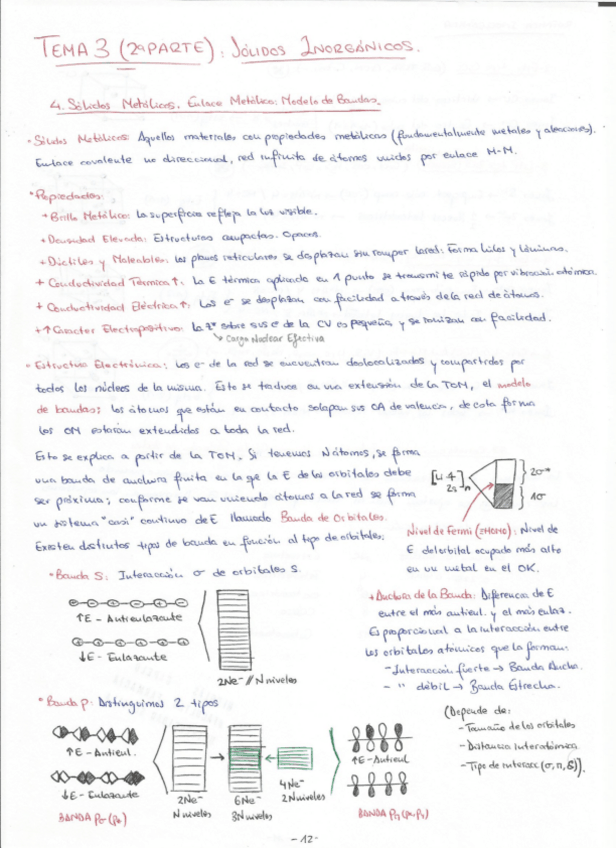 TEMA 3 (2ªPARTE): SÓLIDOS INORGÁNICOS.
4. Sólidos Metálicos. Enlace Metálico: Modelo de Bandas.
• Sólidos Metálicos: Aquellos materiales con propiedades metálicas (fundamentalmente metales y aleaciones).
Enlace covalente no direccional, red infinita de átomos unidos por enlace M-M.
• Propiedades:
+ Brillo Metálico: La superficie refleja la luz visible.
+ Densidad Elevada: Estructuras compactas. Opacos.
+ Dúctiles y Maleables: los planos reticulares se desplazan sin romper la red: forma hilos y láminas.
+ Conductividad Térmica↑: la E térmica aplicada en 1 punto se transmite rápido por vibración atómica.
+ Conductividad Eléctrica↑: Los e⁻ se desplazan con facilidad a través de la red de átomos.
+ ↑Carácter Electropositivo: la Z* sobre sus e⁻ de la CV es pequeña y se ionizan con facilidad.
↳ Carga Nuclear Efectiva
• Estructura Electrónica: Los e⁻ de la red se encuentran deslocalizados y compartidos por
todos los núcleos de la misma. Esto se traduce en una extensión de la TOM, el modelo
de bandas; los átomos que están en contacto solapan sus OA de valencia, de esta forma
los OM estarán extendidos a toda la red.
Esto se explica a partir de la TOM. Si tenemos N átomos, se forma
una banda de anchura finita en la que la E de los orbitales debe
ser próxima; conforme se van uniendo átomos a la red se forma
un sistema "casi" continuo de E llamado Banda de Orbitales.
Existen distintos tipos de banda en función al tipo de orbitales:
2σ*
1σ
Nivel de Fermi (≈HOMO): Nivel de
E del orbital ocupado más alto
en un metal en el 0K.
• Banda S: Interacción σ de orbitales S.
↑E - Antienlazante
↓E - Enlazante
2Ne⁻ // N niveles
+ Anchura de la Banda: Diferencia de E
entre el más antienl. y el más enlaz.
Es proporcional a la interacción entre
los orbitales atómicos que la forman:
- Interacción fuerte → Banda Ancha.
- " débil → Banda Estrecha.
(Depende de:
- Tamaño de los orbitales
- Distancia interatómica
- Tipo de interacc (σ, π, δ)).
• Banda p: Distinguimos 2 tipos
↑E - Antienl.
↓E - Enlazante
BANDA pσ (pz)
2Ne⁻
N niveles
6Ne⁻
3N niveles
4Ne⁻
2N niveles
↑E - Antienl.
BANDA pπ (px py)
- 12 -